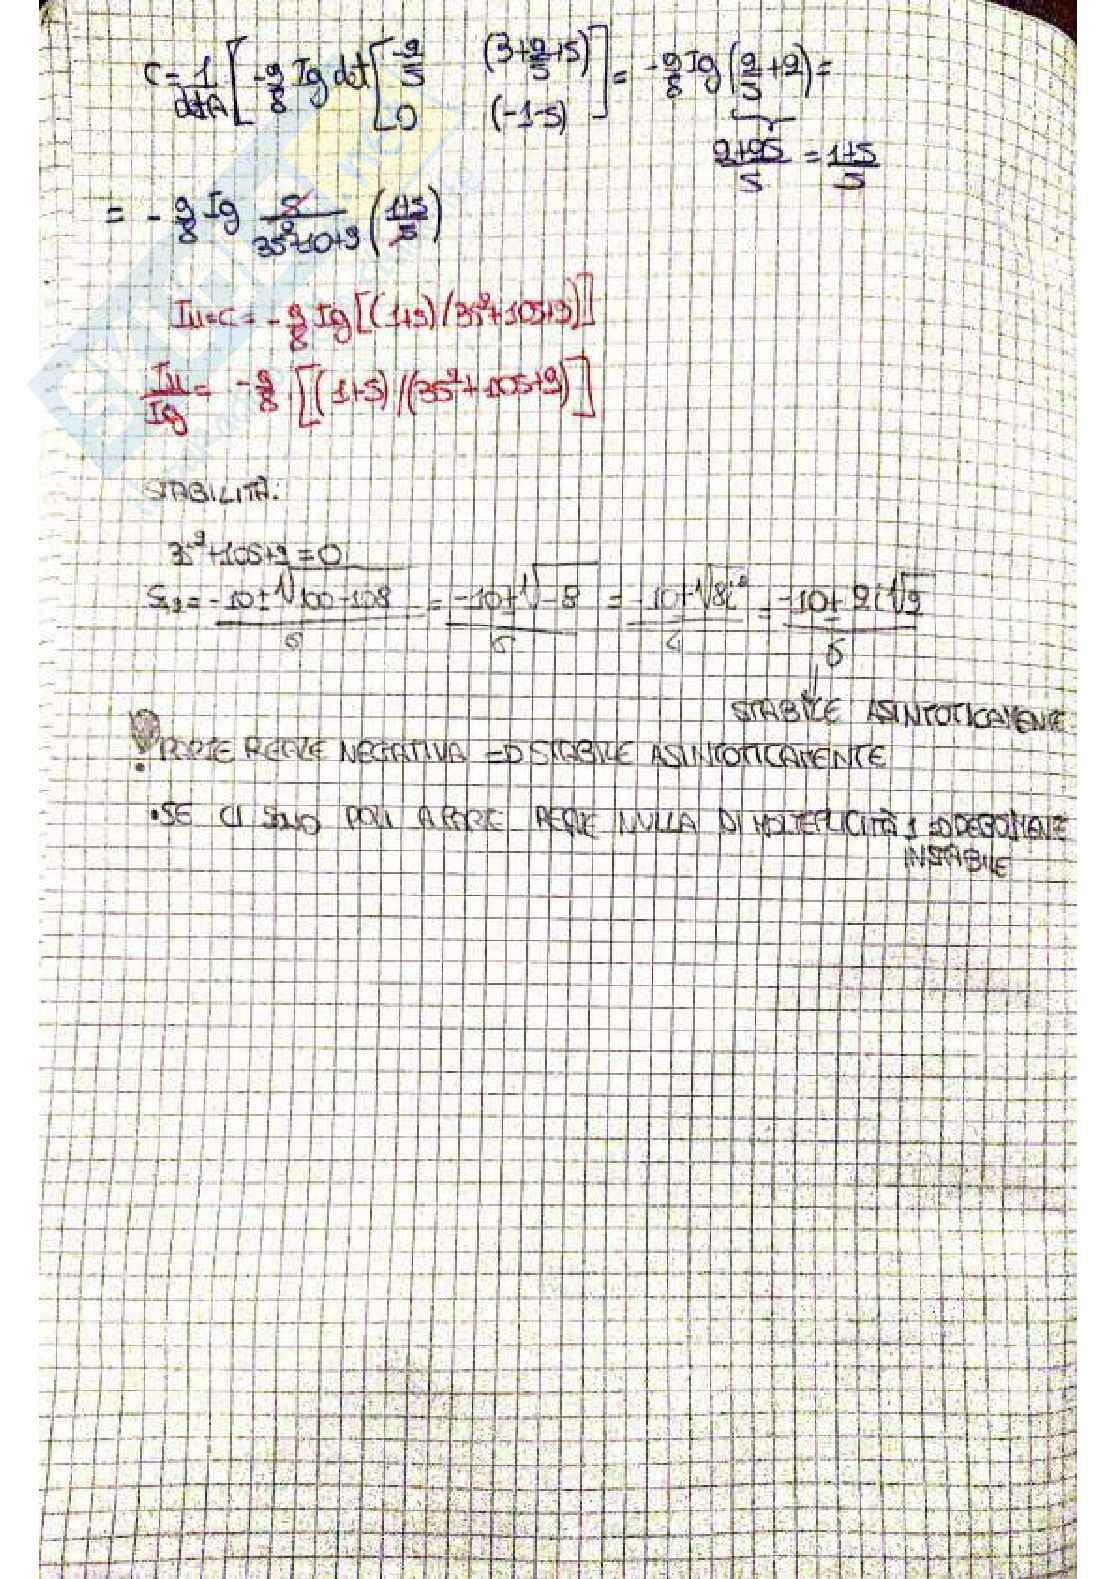 C = 1/detA [ -2/8 Ig det [ -2/s (3+2/s+s) ] = -2/8 Ig (2/s+2) =
0 (-1-s)
2+2s/s = 1+s/s
= - 2/8 Ig s/3s²+10+9 (1+s/s)
Iu=C= - 2/8 Ig [(1+s)/3s²+10s+9)]
Iu/Ig = -2/8 [(1+s)/(3s²+10s+9)]
STABILITÀ:
3s²+10s+9=0
S1,2 = -10±√100-108/6 = -10±√-8/6 = -10±√8i²/6 = -10±2i√2/6
STABILE ASINTOTICAMENTE
! PARTE REALE NEGATIVA => STABILE ASINTOTICAMENTE
•SE CI SONO POLI A PARTE REALE NULLA DI MOLTEPLICITÀ 1 => DEBOLMENTE
INSTABILE